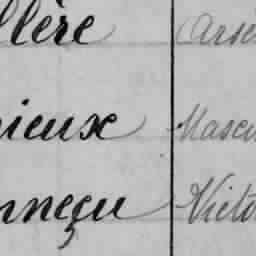 llère Arsè
nieux Mascu
nneçu Victo